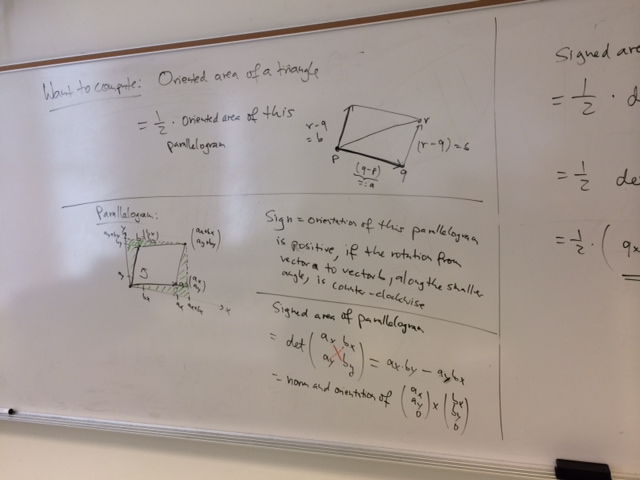 Want to compute: Oriented area of a triangle
= 1/2 · oriented area of this
parallelogram
r-q
= b
p
r
(r-q) = b
(q-p)
=: a
q
Parallelogram:
Sign = orientation of this parallelogram
is positive, if the rotation from
vector a to vector b, along the smaller
angle, is counter-clockwise
(ax+bx
ay+by)
(ax
ay)
x
Signed area of parallelogram
= det (ax bx
ay by) = ax·by - aybx
= norm and orientation of (ax
ay
0) x (bx
by
0)
Signed are
= 1/2 · d
= 1/2 de
= 1/2 · ( qx